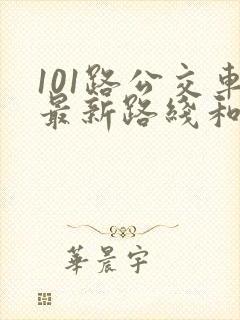 101路公交車
最新路綫和
華晨宇